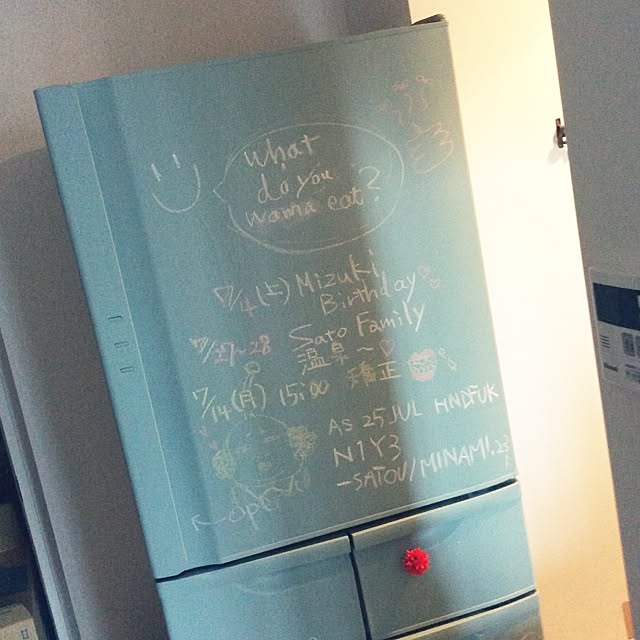 What
do you
wanna eat?
7/4(土) Mizuki
Birthday
7/27~28 Sato Family
温草~
7/14(月) 15:00 矯正
AS 25JUL HNDFUK
N1Y3
-SATOU/MINAMI.
open